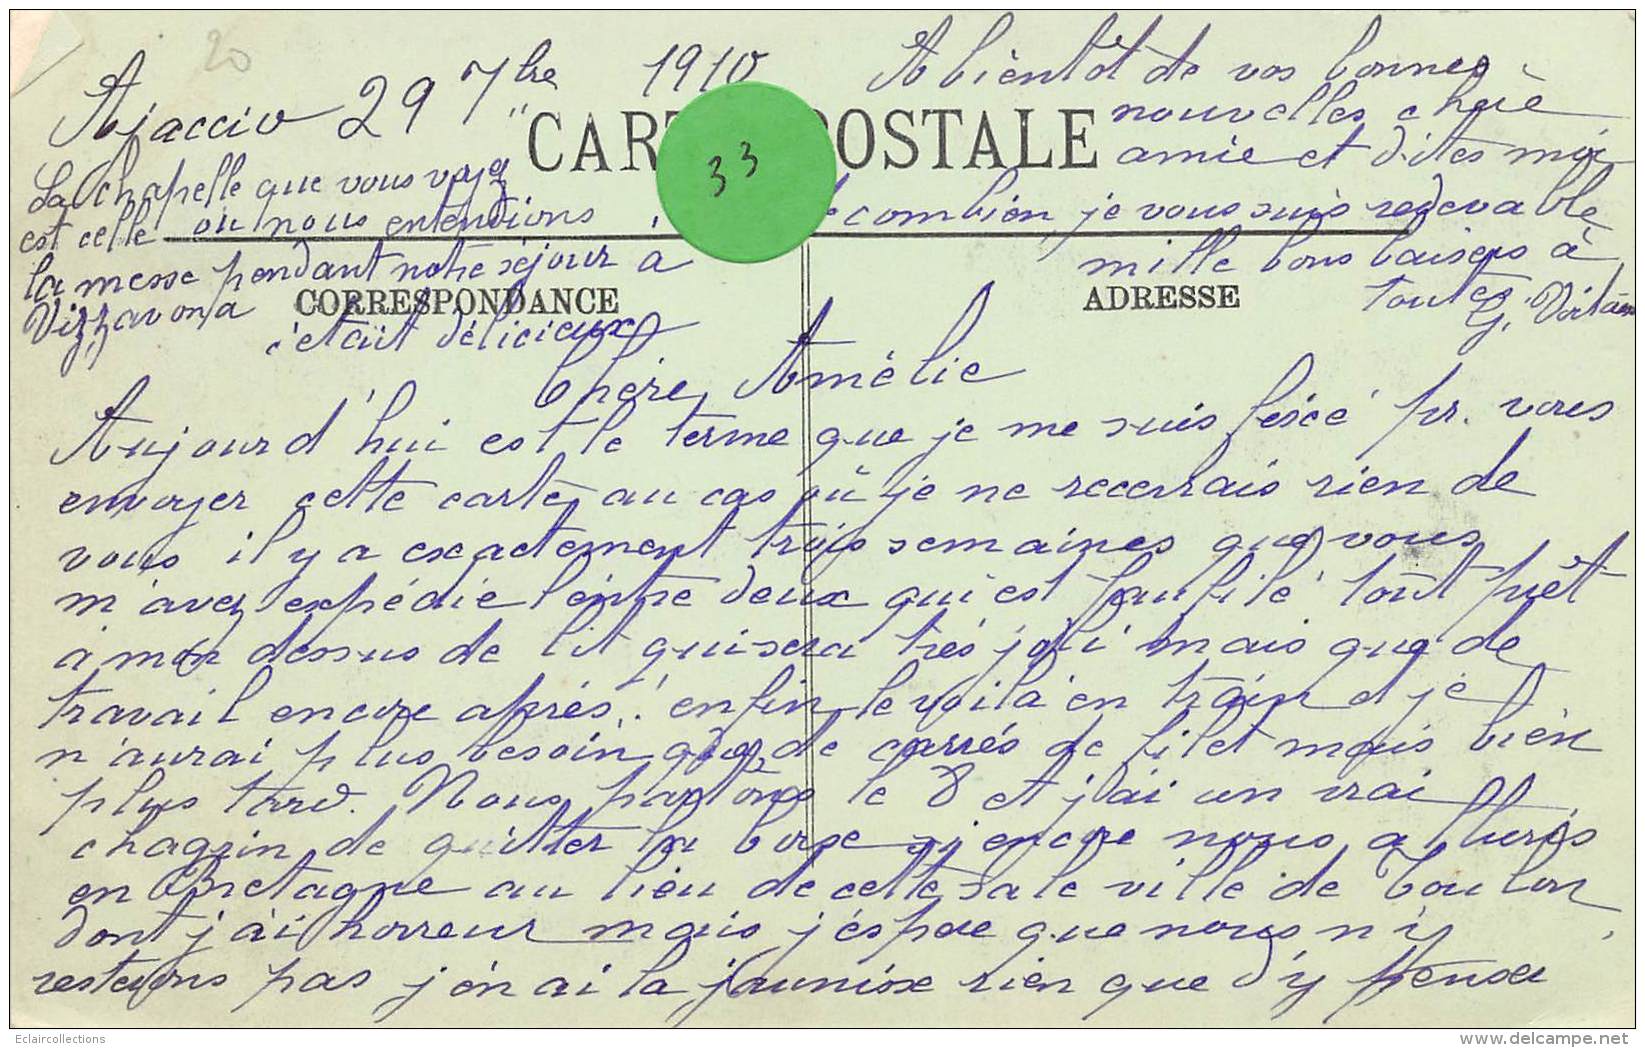 20
Ajaccio 29 7bre 1910
A bientôt de vos bonnes
nouvelles chère
amie et dites moi
de combien je vous suis redevable
mille bons baisers à
toutes G.
"CARTE POSTALE
33
La chapelle que vous voyez
est celle où nous entendions
la messe pendant notre séjour à
Vizzavona
c'était délicieux
CORRESPONDANCE
ADRESSE
Chère Amélie
Aujourd'hui est le terme que je me suis fescé pr. vous
envoyer cette carte, au cas où je ne recevrais rien de
vous il y a exactement trois semaines que vous
m'avez expédié l'entre deux qui est faufilé tout prêt
à mon dessus de lit qui sera très joli mais que de
travail encore après! enfin le voilà en train et je
n'aurai plus besoin que de carrés de filet mais bien
plus tard. Nous partons le 8 et j'ai un vrai
chagrin de quitter la Corse si encore nous allions
en Bretagne au lieu de cette sale ville de Toulon
dont j'ai horreur mais j'espère que nous n'y
resterons pas j'en ai la jaunisse rien que d'y penser
Eclaircollections
delcampe.net